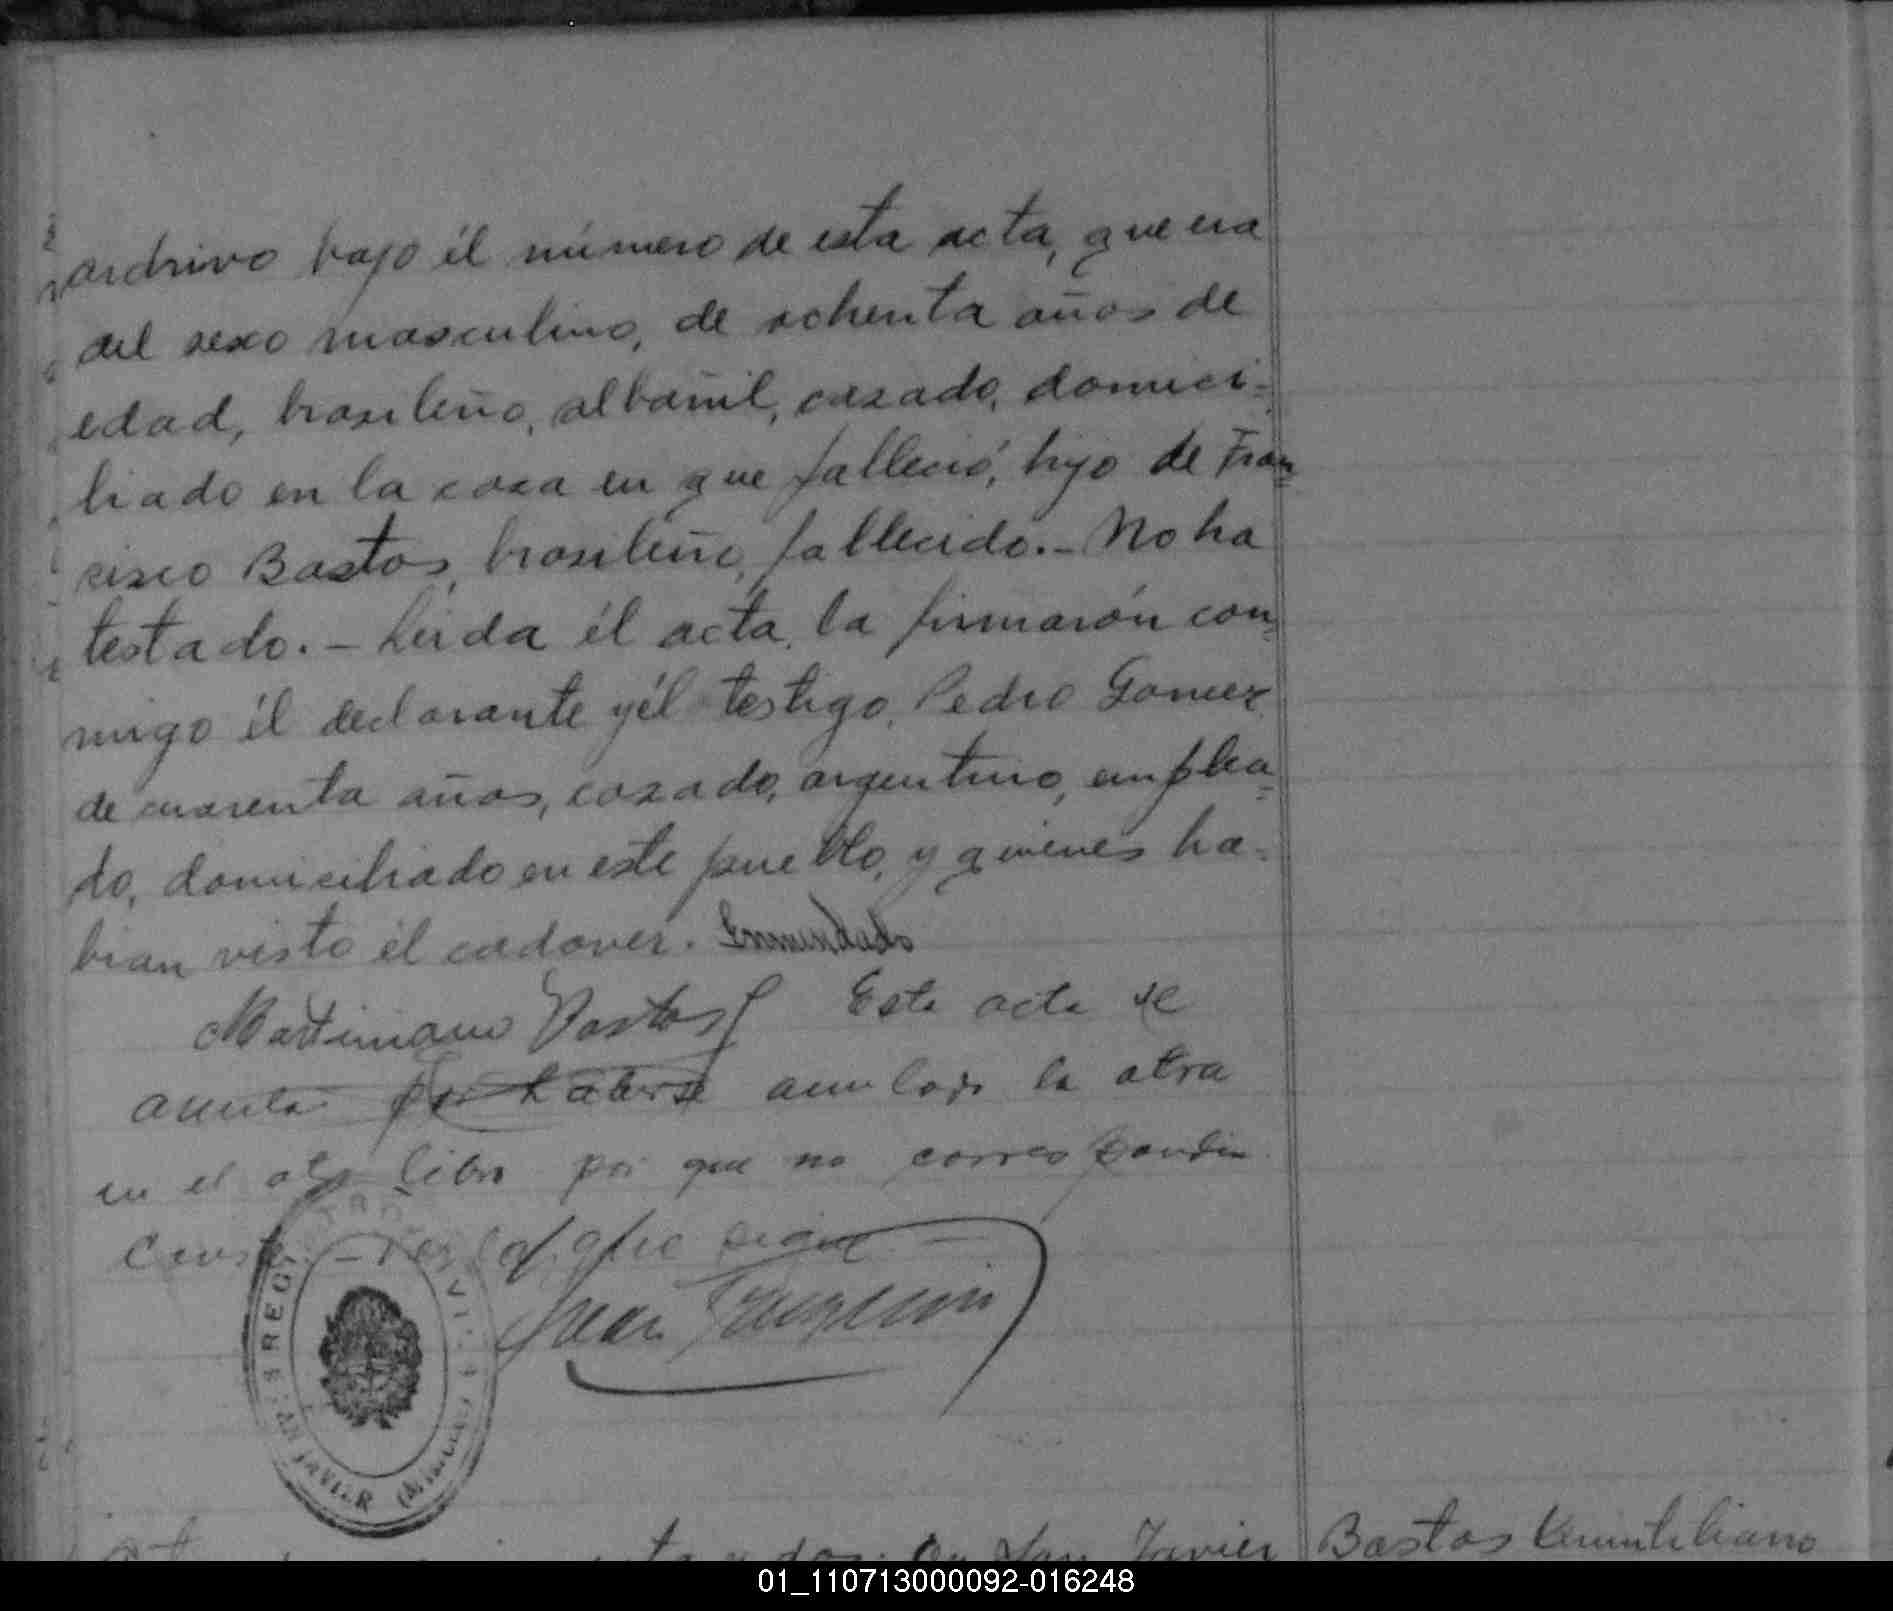 archivo bajo él número de esta acta, que era
del sexo masculino, de ochenta años de
edad, brasileño, albañil, casado, domici-
liado en la casa en que falleció, hijo de Fran
cisco Bastos, brasileño, fallecido.- No ha
testado.- Leida él acta, la firmarón con
migo él declarante y él testigo, Pedro Gomez
de cuarenta años, casado, argentino, emplea
do, domiciliado en este pueblo, y quienes ha-
bian visto él cadaver. Enmendado
Martimiano Vastos Esta acta se
anula por haberse anulado la otra
en el otro libro por que no correspondia
que sigue
Juan
REGISTRO CIVIL
SAN JAVIER (MISIONES)
y dos. En San Javier
Bastos
01_110713000092-016248